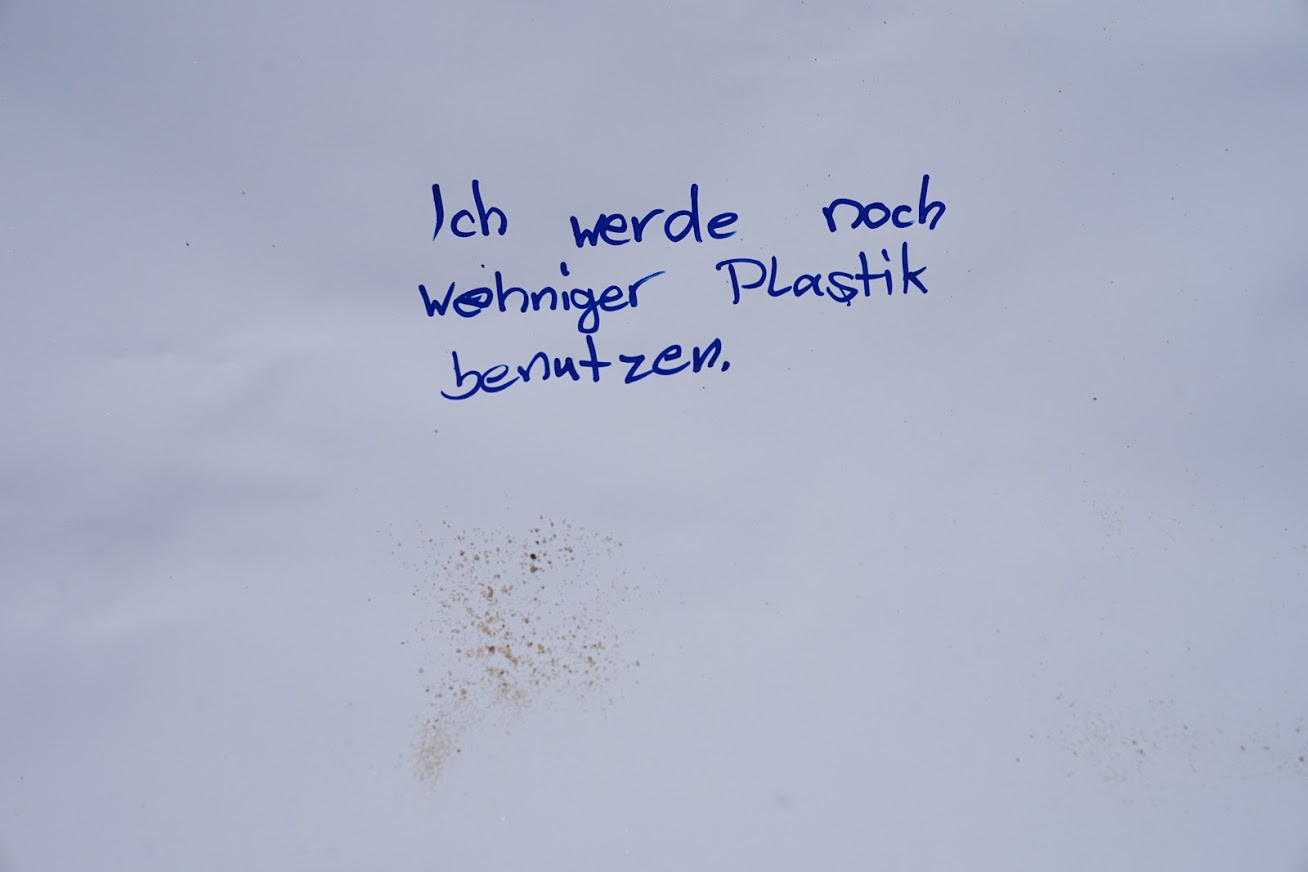 Ich werde noch
wehniger Plastik
benutzen.